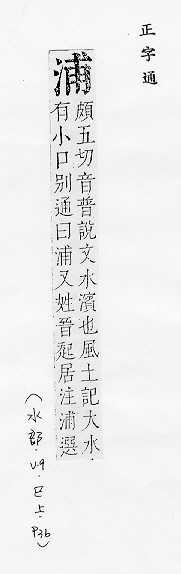 正字通
浦
頗五切音普說文水濱也風土記大水
有小口別通曰浦又姓晉起居注浦選
(水部．U9．巳上．P36)